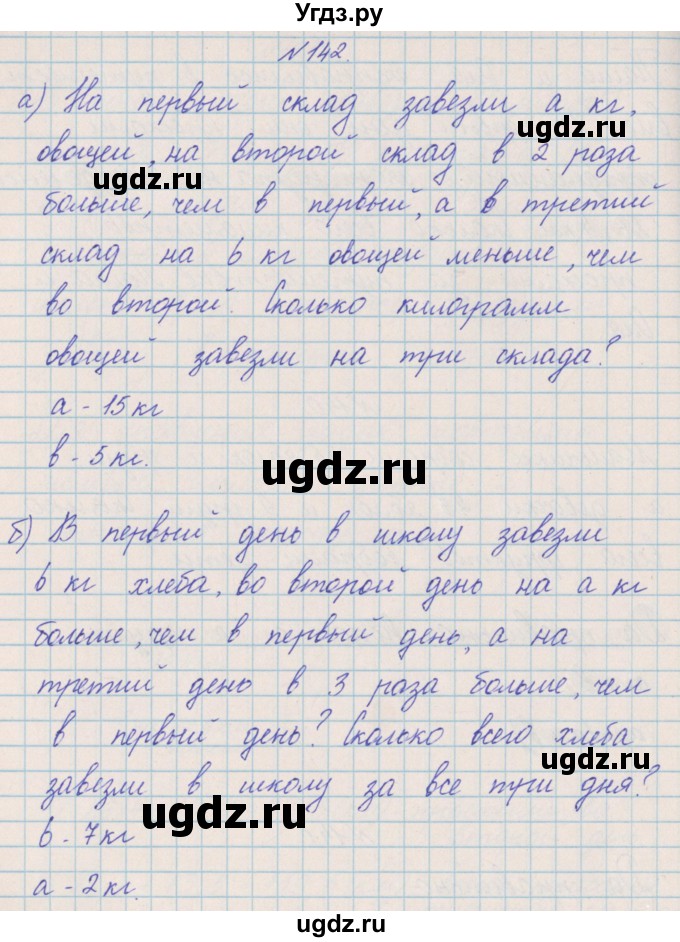 Угдз.ру
№142.
а) На первый склад завезли а кг.
овощей, на второй склад в 2 раза
больше, чем в первый, а в третий
склад на b кг овощей меньше, чем
во второй. Сколько килограмм
овощей завезли на три склада?
а - 15 кг
в - 5 кг.
б) В первый день в школу завезли
b кг хлеба, во второй день на а кг
больше, чем в первый день, а на
третий день в 3 раза больше, чем
в первый день? Сколько всего хлеба
завезли в школу за все три дня?
b - 7 кг
а - 2 кг.
ugdz.ru
ugdz.ru
ugdz.ru
ugdz.ru
ugdz.ru
ugdz.ru